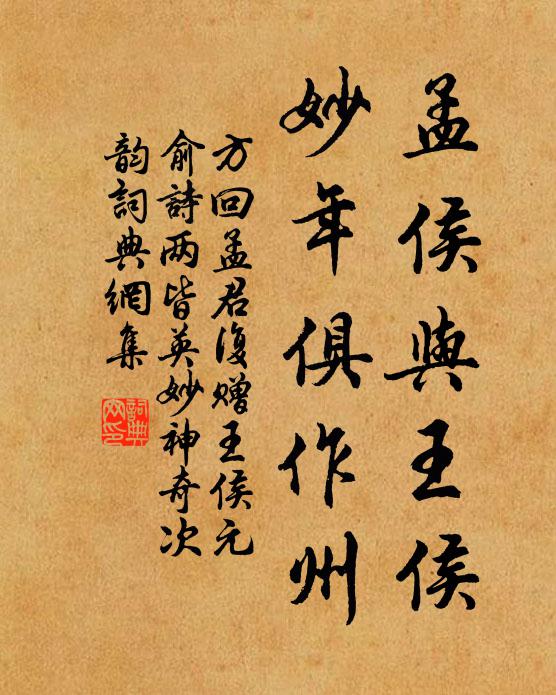 孟侯與王侯
妙年俱作州
方回孟君復贈王侯元
俞詩两皆英妙神奇次
韵詞典網集
詞典網印